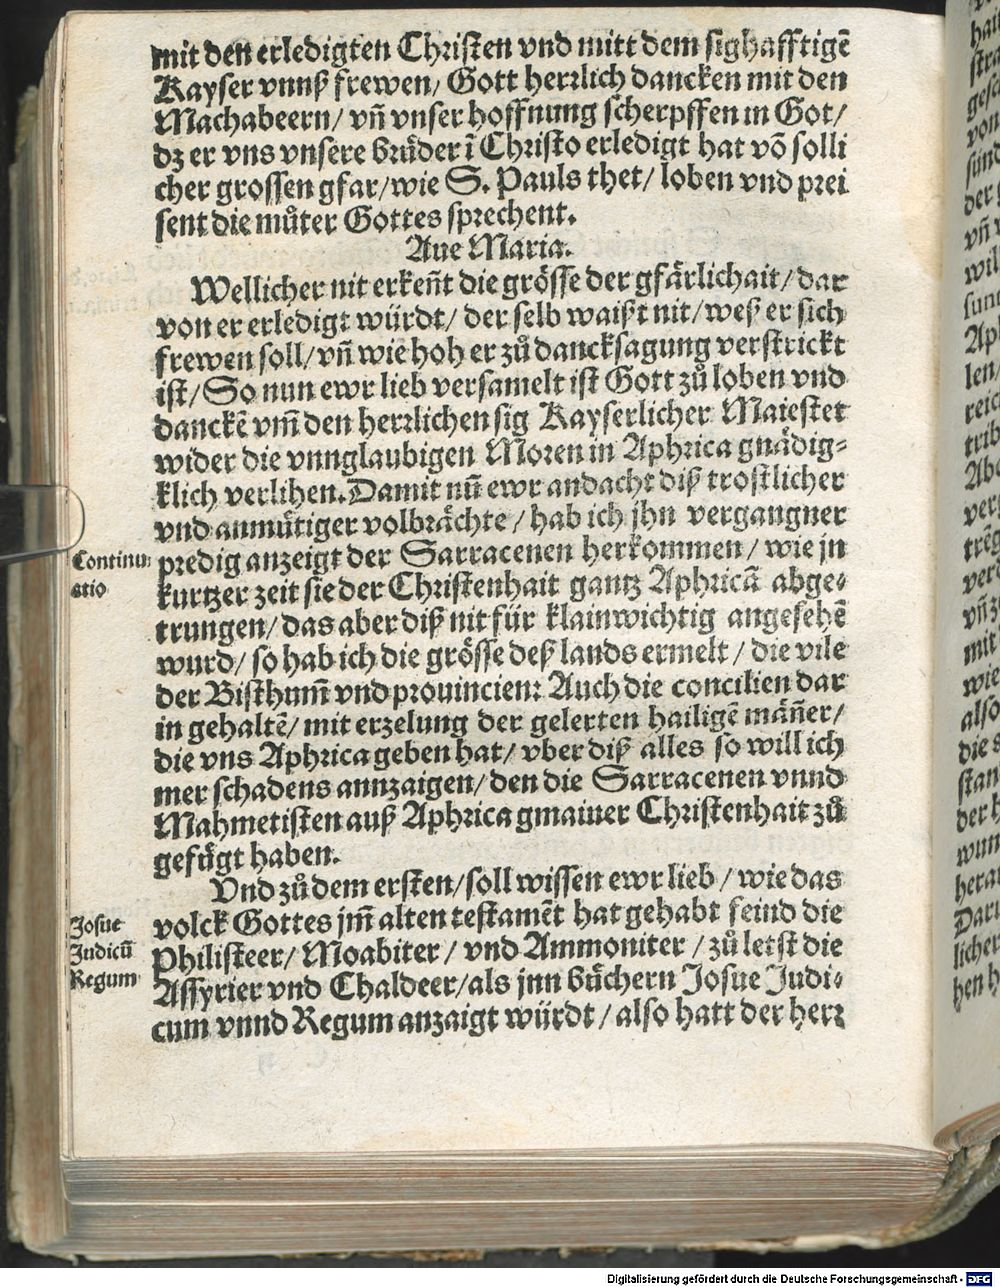 mit den erledigten Christen vnd mitt dem sighafftigẽ
Kayser vnnß frewen/ Gott herrlich dancken mit den
Machabeern/ vñ vnser hoffnung scherpffen in Got/
dz er vns vnsere Brůder ĩ Christo erledigt hat võ solli
cher grossen gfar/wie S. Pauls thet/ loben vnd prei
sent die můter Gottes sprechent.
Aue Maria.
Wellicher nit erkeñt die grösse der gfärlichait/ dar
von er erledigt würdt/ der selb waißt nit/ weß er sich
frewen soll/ vñ wie hoh er zů dancksagung verstrickt
ist/ So nun ewr lieb versamelt ist Gott zů loben vnd
danckẽ vm̃ den herrlichen sig Kayserlicher Maiestet
wider die vnnglaubigen Moren in Aphrica gnädig-
klich verlihen. Damit nũ ewr andacht diß trostlicher
vnd anmůtiger volbrächte/ hab ich jhn vergangner
Continu-
atio
predig anzeigt der Sarracenen herkommen/ wie jn
kurtzer zeit sie der Christenhait gantz Aphricã abge-
trungen/ das aber diß nit für klainwichtig angesehẽ
wurd/ so hab ich die grösse deß lands ermelt/ die vile
der Bisthum̃ vnd prouincien: Auch die concilien dar
in gehaltẽ/ mit erzelung der gelerten hailigẽ mãñer/
die vns Aphrica geben hat/ vber diß alles so will ich
mer schadens annzaigen/ den die Sarracenen vnnd
Mahmetisten auß Aphrica gmainer Christenhait zů
gefůgt haben.
Vnd zů dem ersten/ soll wissen ewr lieb/ wie das
Josue
Judicũ
Regum
volck Gottes jm̃ alten testamẽt hat gehabt feind die
Philisteer/ Moabiter/ vnd Ammoniter/ zů letst die
Assyrier vnd Chaldeer/ als jnn bůchern Josue Judi-
cum vnnd Regum anzaigt würdt/ also hatt der herr
Digitalisierung gefördert durch die Deutsche Forschungsgemeinschaft - DFG